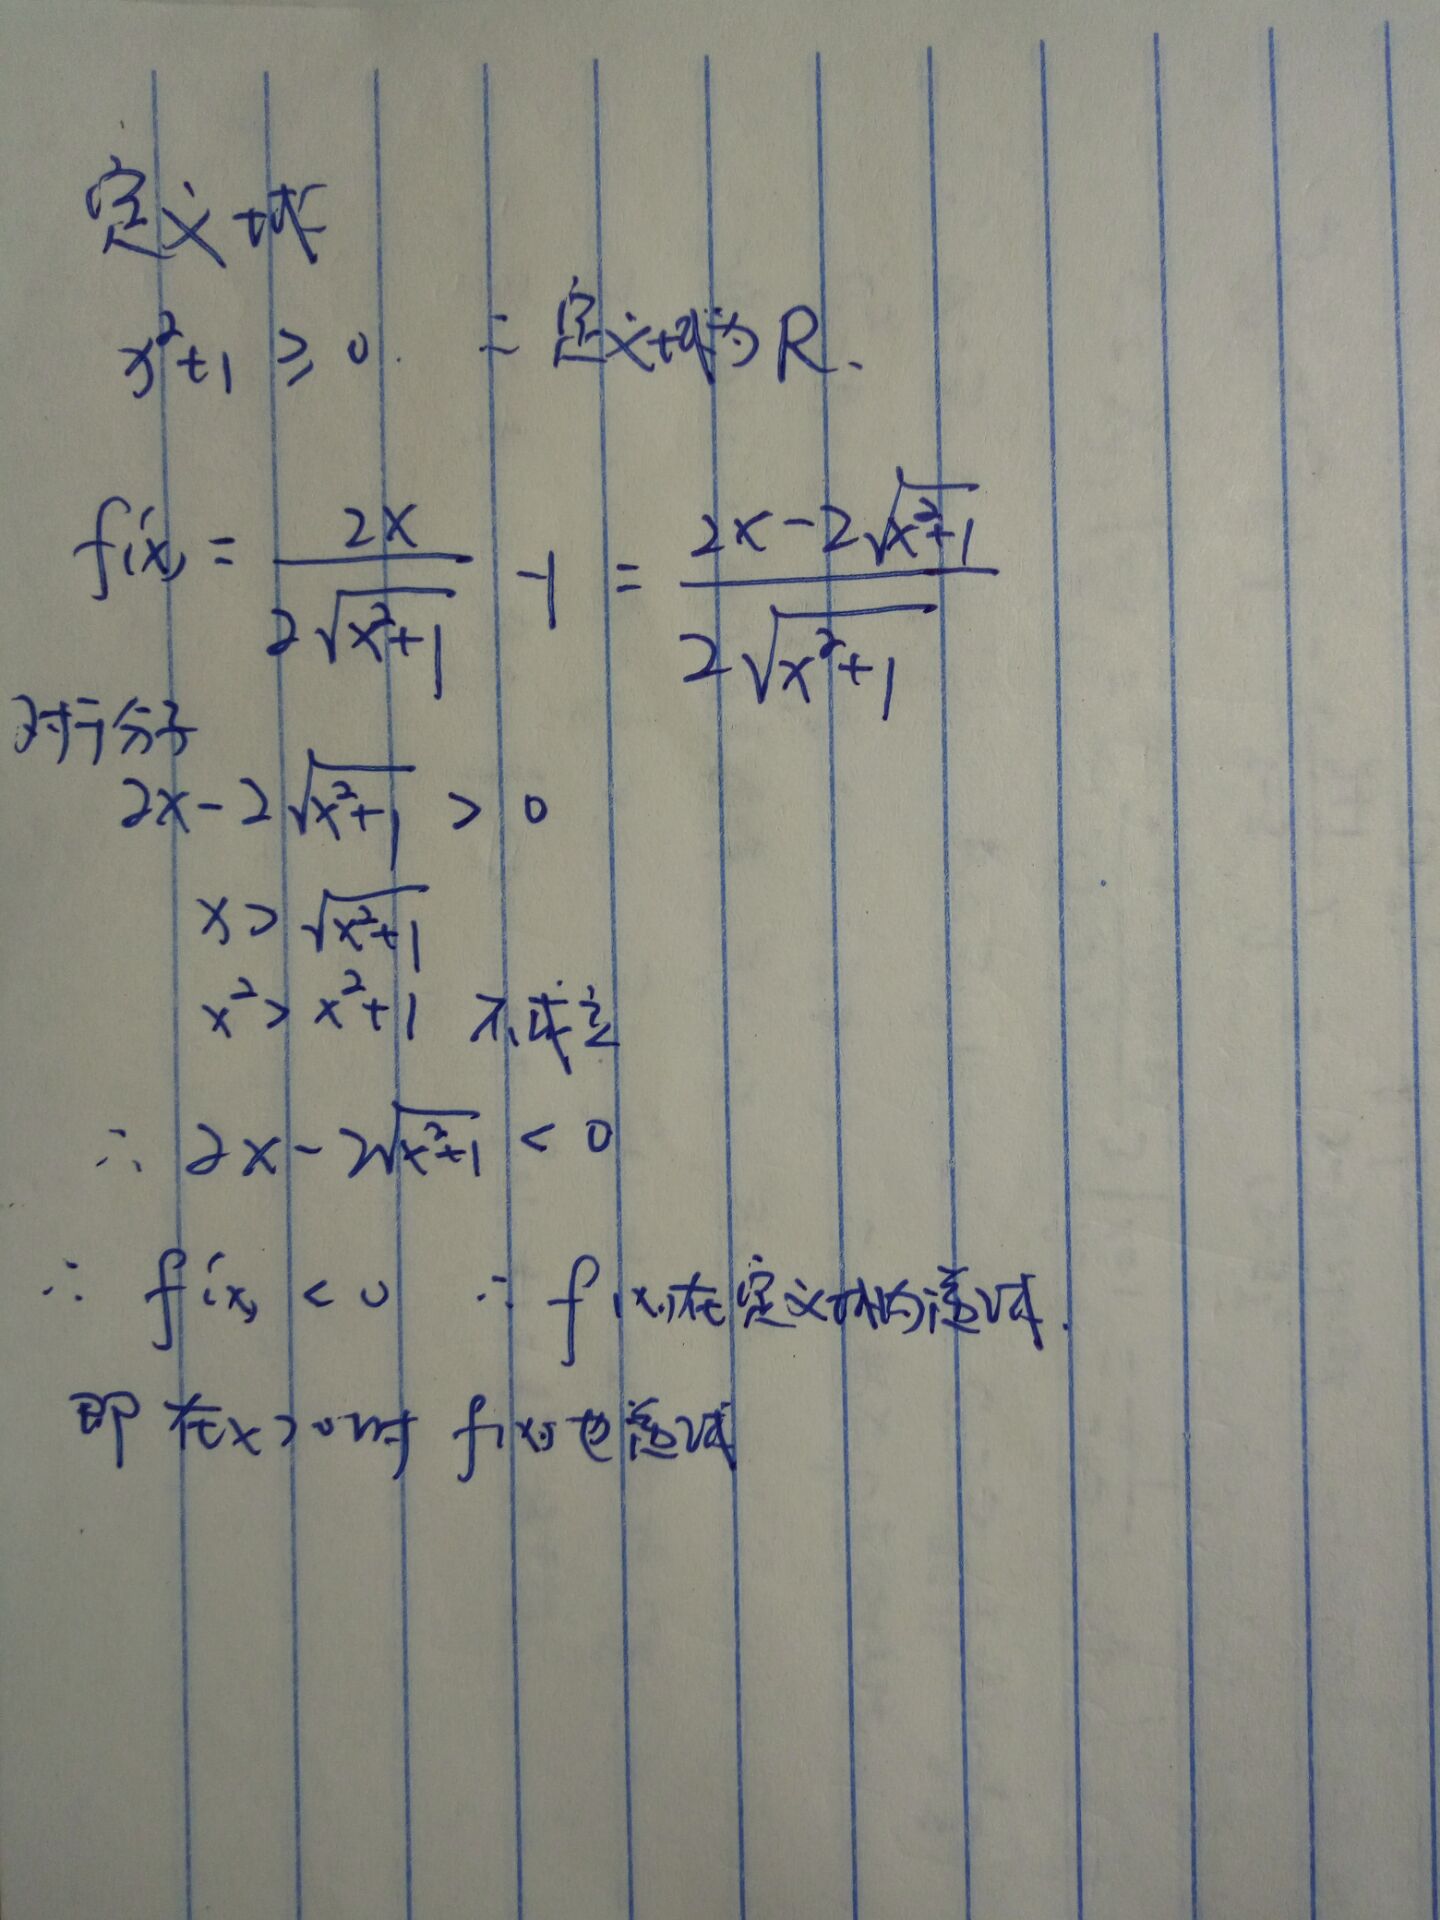 定义域
x²+1 ≥ 0. ∴ 定义域为 R.
f'(x) = \frac{2x}{2\sqrt{x²+1}} - 1 = \frac{2x-2\sqrt{x²+1}}{2\sqrt{x²+1}}
对于分子
2x-2\sqrt{x²+1} > 0
x > \sqrt{x²+1}
x² > x²+1 不成立
∴ 2x-2\sqrt{x²+1} < 0
∴ f'(x) < 0 ∴ f(x)在定义域内递减.
即 在x>0时 f(x)也递减